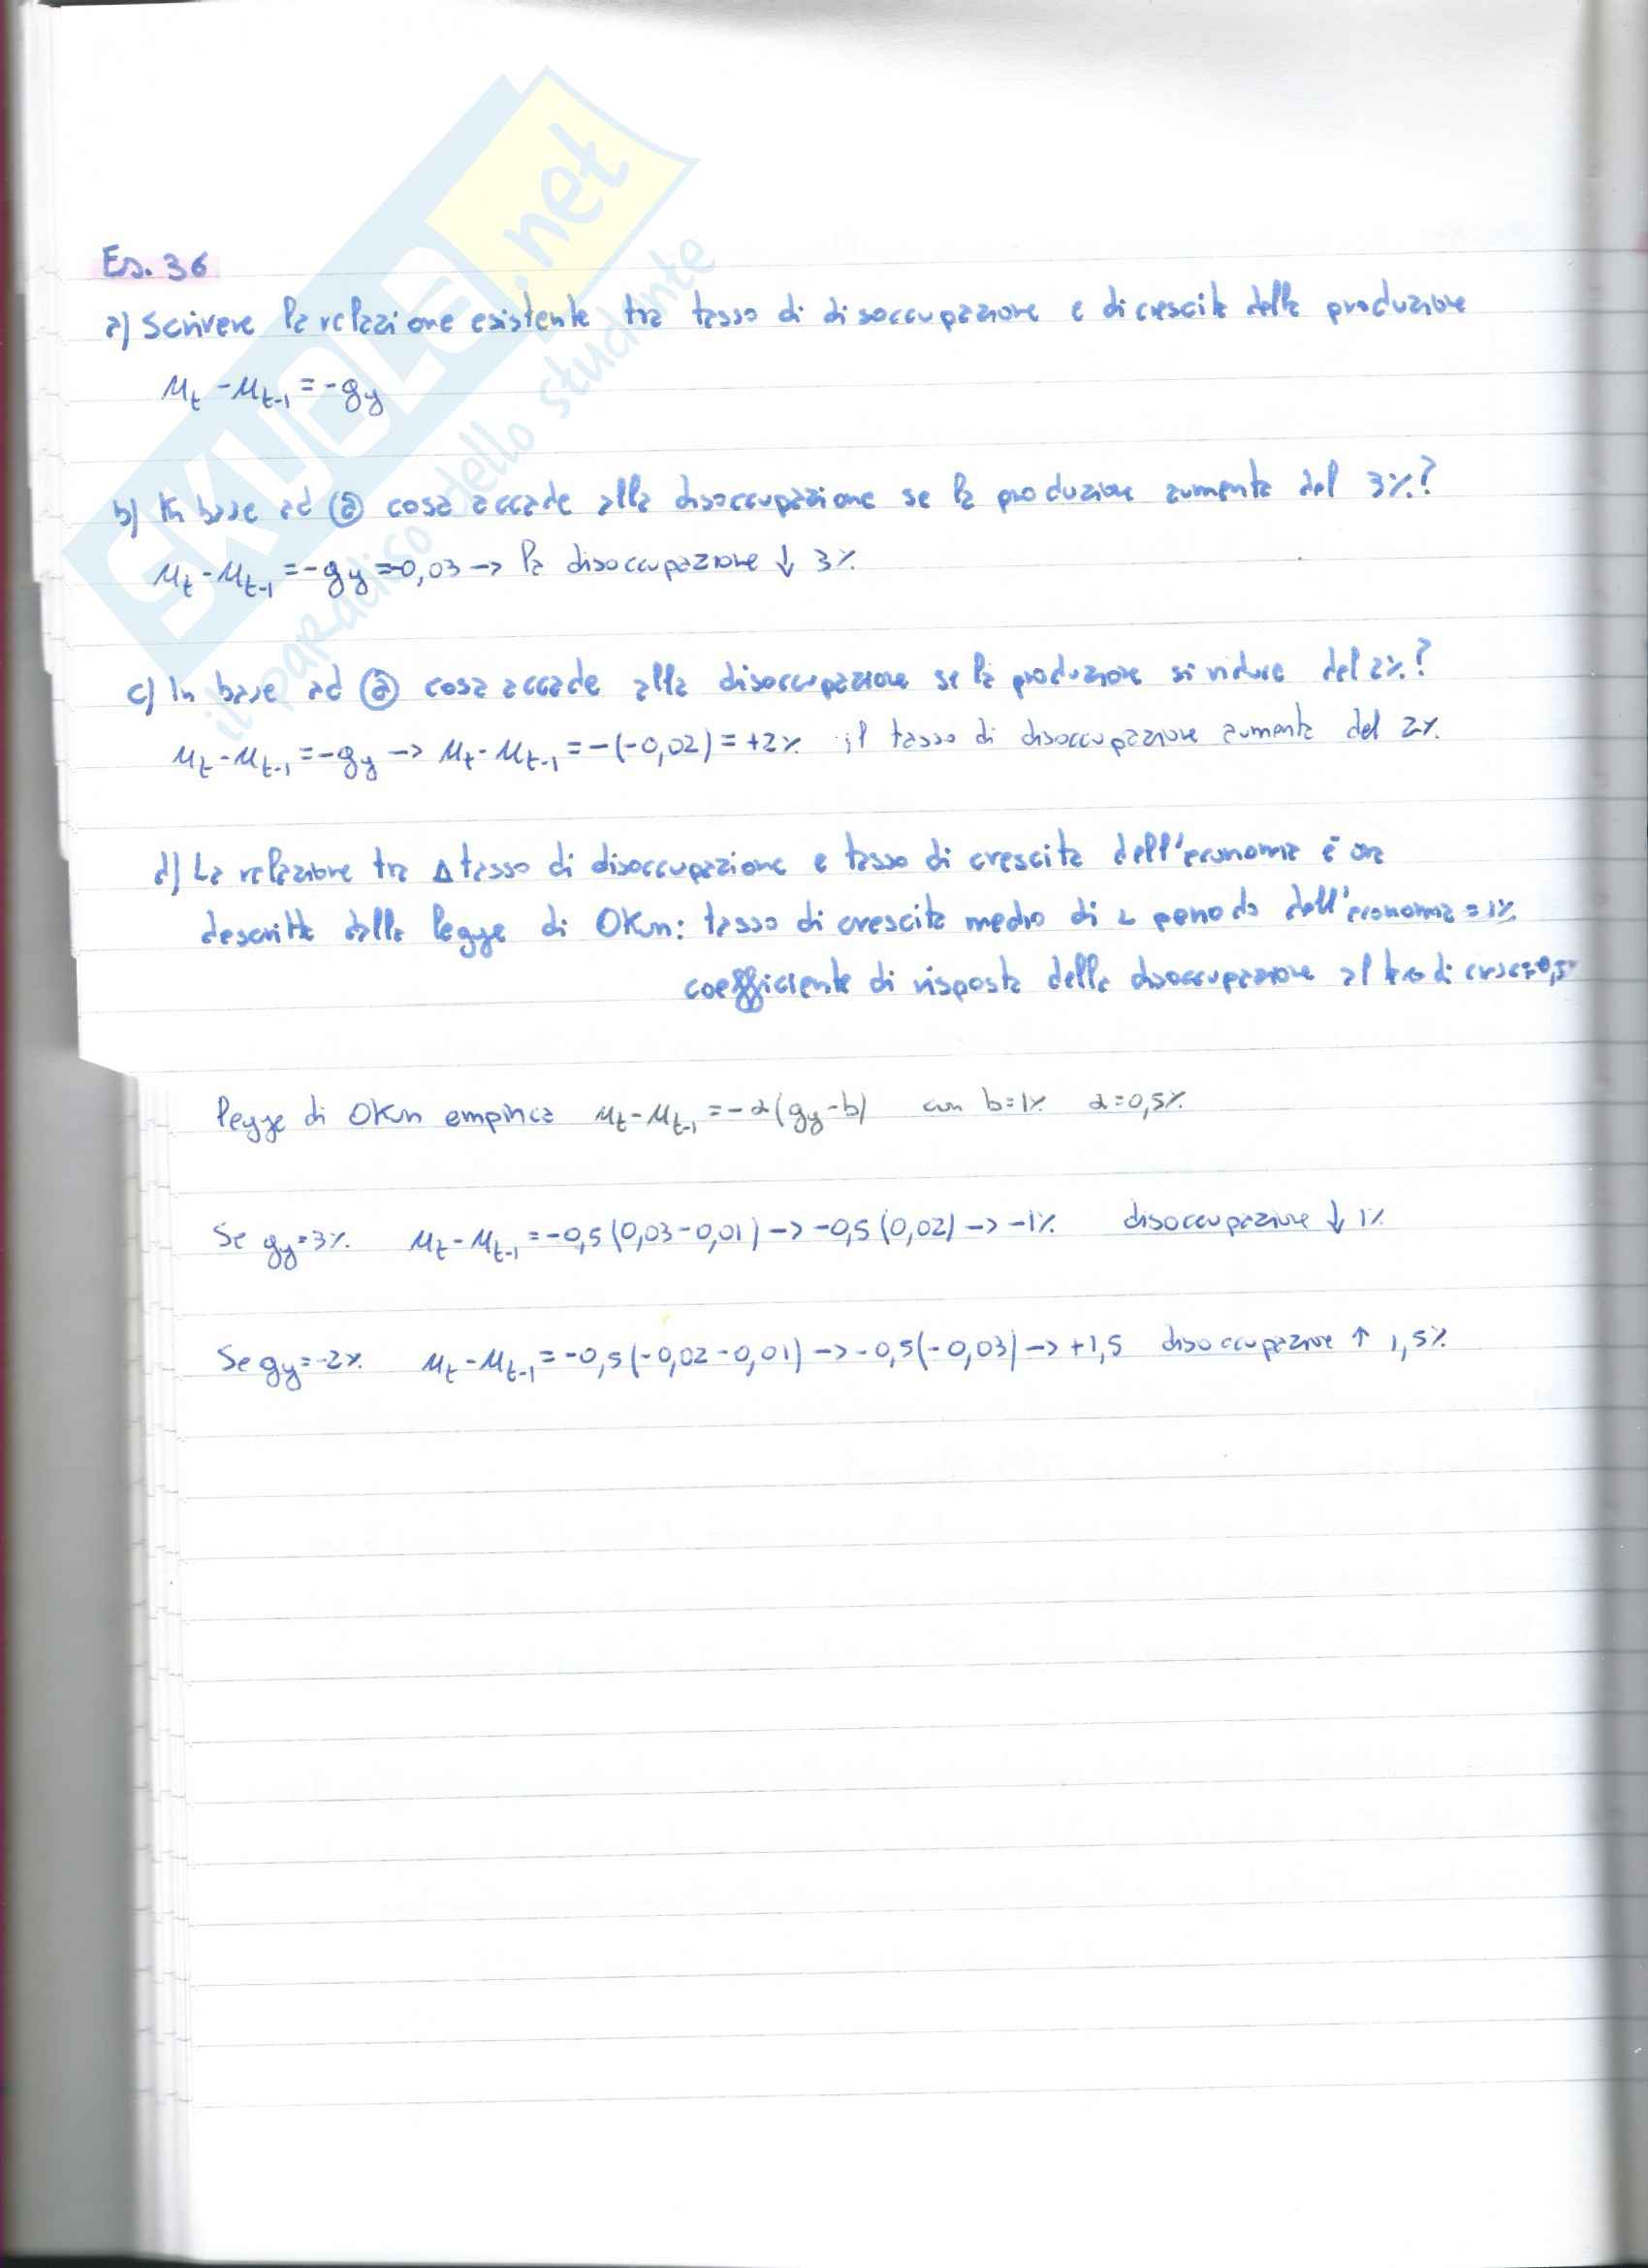 SKUOLA.net
il paradiso dello studente
Es. 36
a) Scrivere la relazione esistente tra tasso di disoccupazione e di crescita della produzione
μt - μt-1 = -gy
b) In base ad ⓐ cosa accade alla disoccupazione se la produzione aumenta del 3%?
μt - μt-1 = -gy = -0,03 -> la disoccupazione ↓ 3%
c) In base ad ⓐ cosa accade alla disoccupazione se la produzione si riduce del 2%?
μt - μt-1 = -gy -> μt - μt-1 = -(-0,02) = +2% il tasso di disoccupazione aumenta del 2%
d) La relazione tra Δ tasso di disoccupazione e tasso di crescita dell'economia è ora
descritta dalla legge di Okun: tasso di crescita medio di periodo dell'economia = 1%
coefficiente di risposta della disoccupazione al di
legge di Okun empirica μt - μt-1 = -α(gy - b) con b = 1% α = 0,5%
Se gy = 3% μt - μt-1 = -0,5(0,03 - 0,01) -> -0,5(0,02) -> -1% disoccupazione ↓ 1%
Se gy = -2% μt - μt-1 = -0,5(-0,02 - 0,01) -> -0,5(-0,03) -> +1,5 disoccupazione ↑ 1,5%